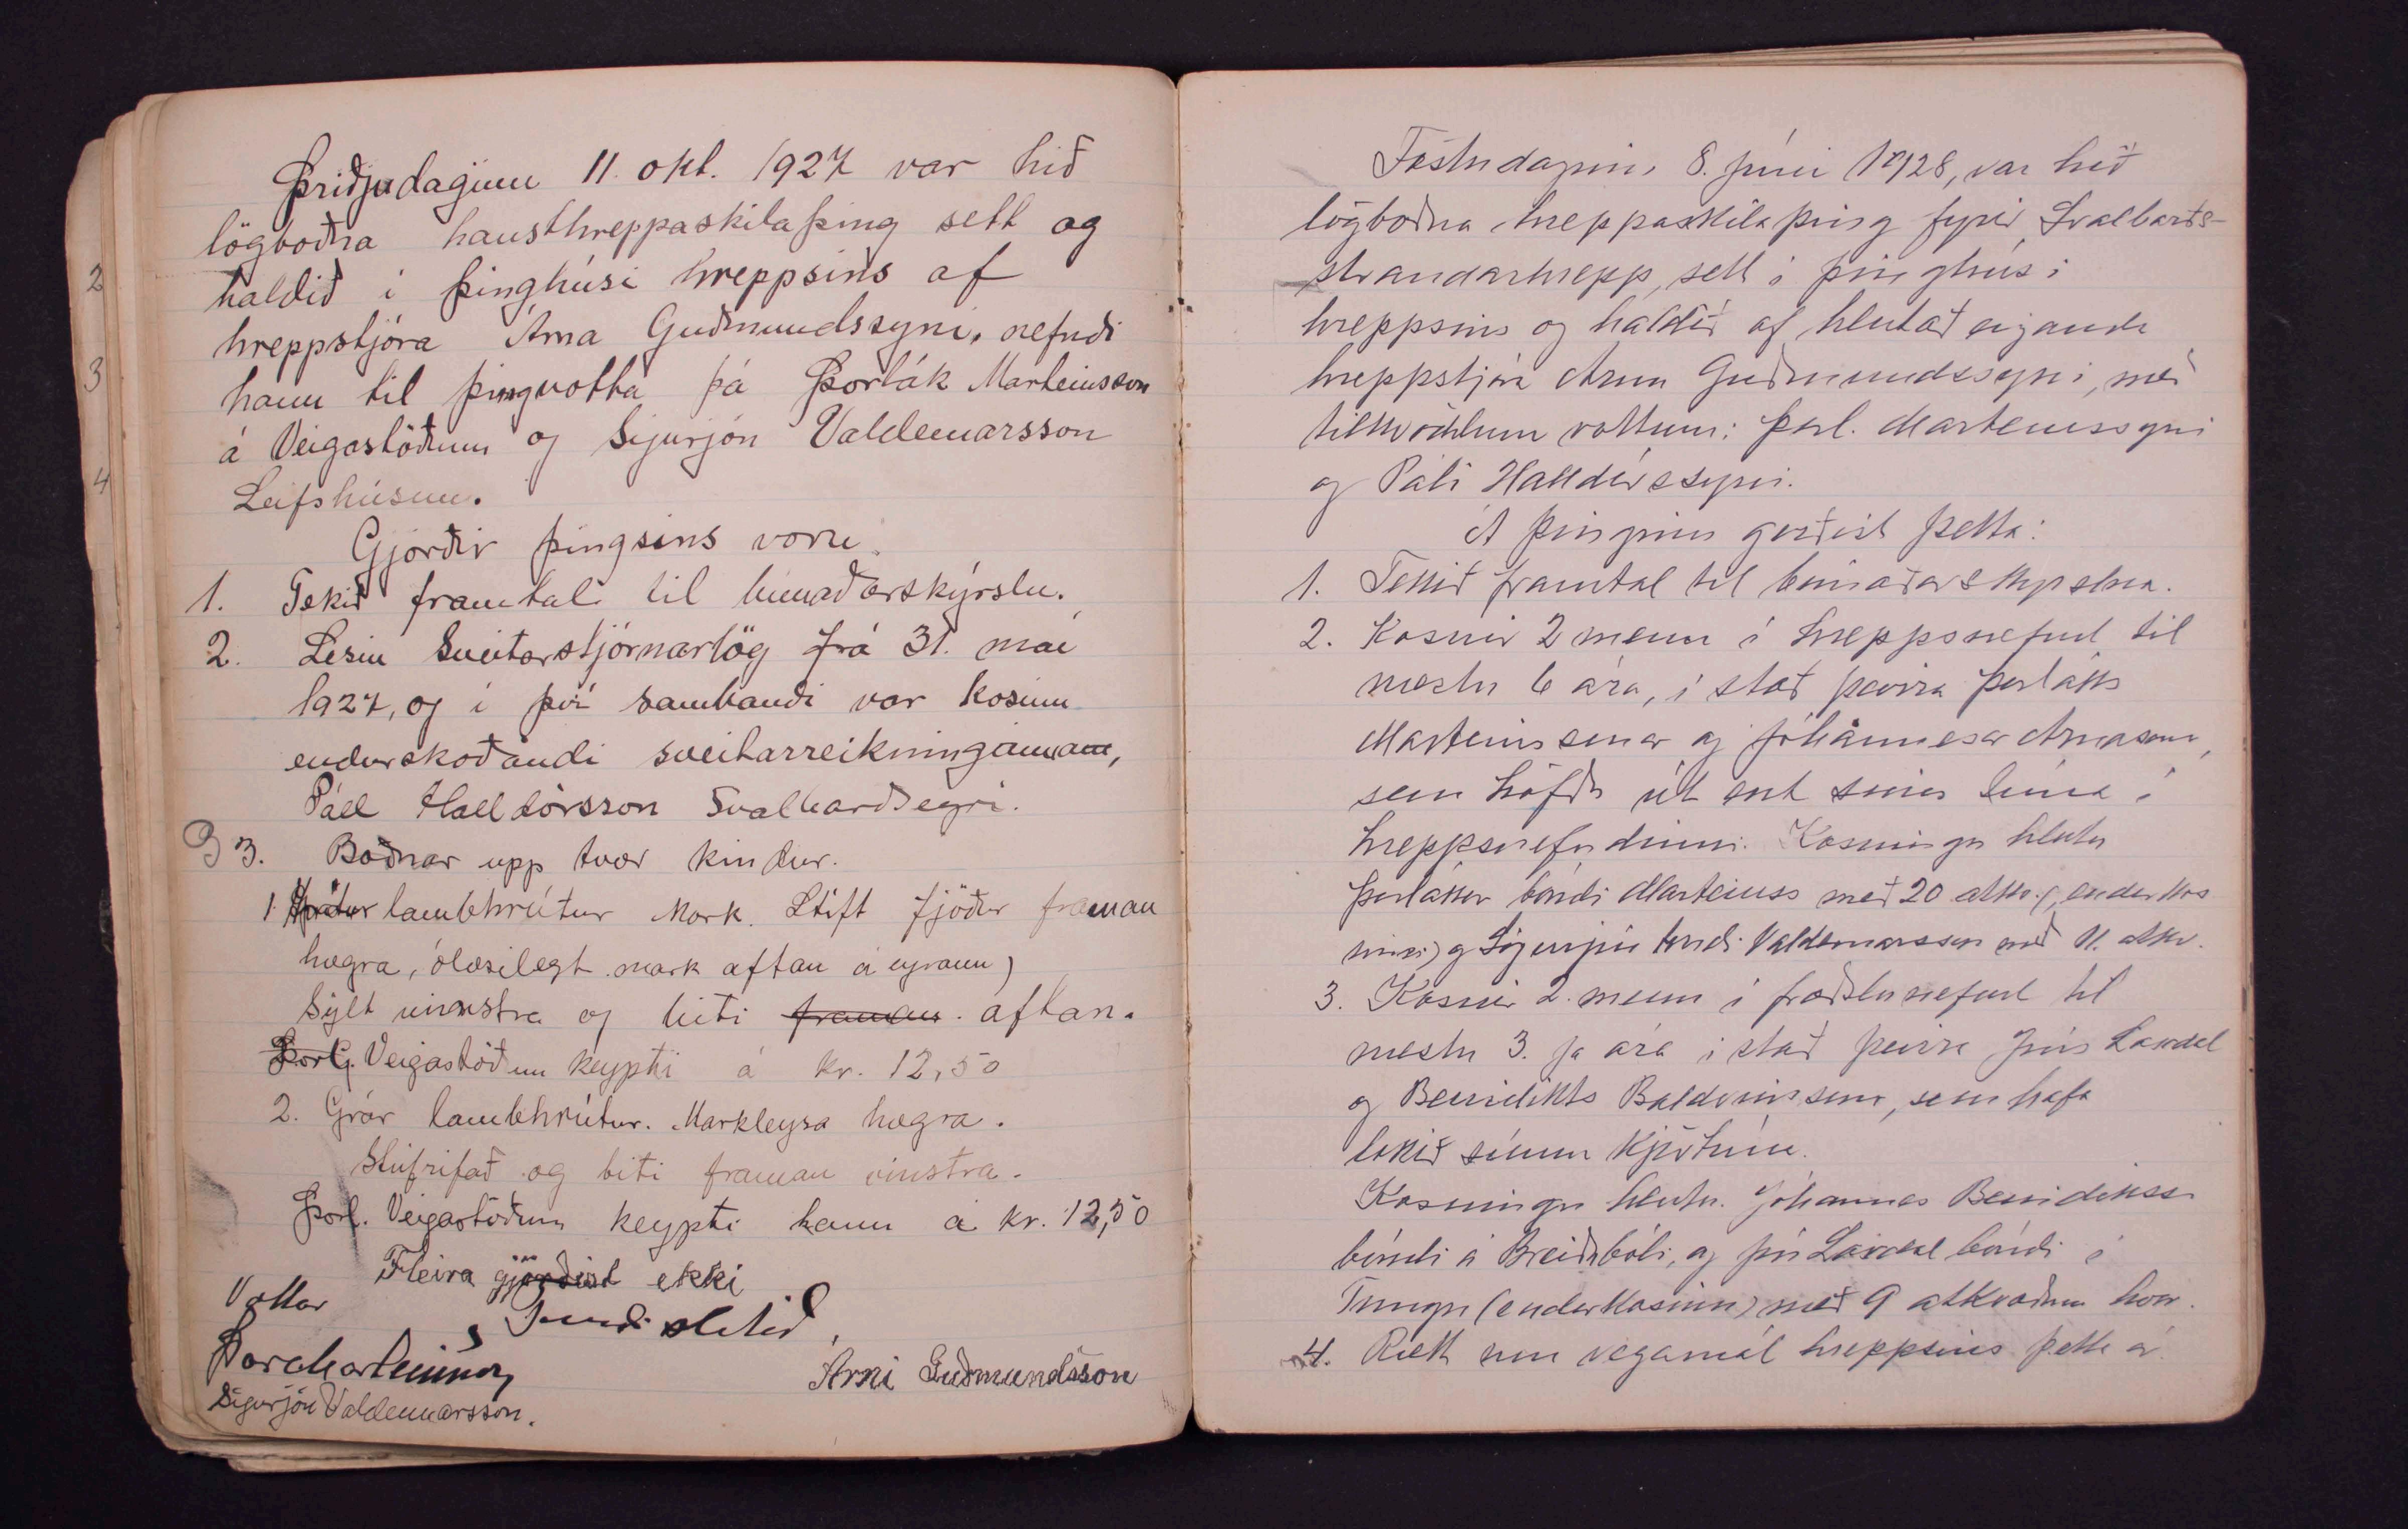 Þriðjudaginn 11. okt. 1927 var hið
lögboðna hausthreppaskilaþing sett og
haldið i þinghúsi hreppsins af
hreppstjóra Árna Guðmundssyni, nefndi
hann til þingvotta þá Þorlák Marteinsson
á Veigastöðum og Sigurjón Valdemarsson
Leifshúsum.
Gjörðir þingsins voru
1. Tekið framtal til búnaðarskýrslu.
2. Lesin Sveitarstjórnarlög frá 31. maí
1927, og i því sambandi var kosinn
endurskoðandi sveitarreikninganna,
Páll Halldórsson Svalbarðseyri.
3 3. Boðnar upp tvær kindur.
1. lambhrútur Mark. Stíft fjöður framan
hægra, ólæsilegt mark aftan á eyranu,
Sýlt vinstra og biti framan aftan.
Þorl. Veigastöðum keypti á kr. 12,50
2. Grár lambhrútur. Markleysa hægra.
Stúfrifað og biti framan vinstra.
Þorl. Veigastöðum keypti hann á kr. 12,50
Fleira gjörðist ekki
Vottar Þundi slitið
Þorl Marteinsson Árni Guðmundsson
Sigurjón Valdemarsson.
2
3
4
Föstudaginn 8. júní 1928, var hið
lögboðna hreppaskilaþing fyrir Svalbarðs-
strandarhrepp, sett i þinghúsi
hreppsins og haldið af hlutaðeigandi
hreppstjóra Árna Guðmundssyni, með
tilkvöddum vottum: Þorl. Marteinssyni
og Páli Halldórssyni.
Á þinginu gerðist þetta:
1. Tekið framtal til búnaðarskyrslna.
2. Kosnir 2 menn í hreppsnefnd til
næstu 6 ára, í stað þeirra Þorláks
Marteinssonar og Jóhannesar Árnasonar,
sem höfðu út ent sinn tíma í
hreppsnefndinni. Kosningu hlutu
Þorlákur bóndi Marteinss með 20 atkv. (endurkos
inn) og Sigurjón bóndi Valdemarsson með 11. atkv.
3. Kosnir 2. menn í fræðslunefnd til
næstu 3. ja ára í stað þeirra Jóns Laxdal
og Benidikts Baldvinssonar, sem hafa
lokið sínum kjörtíma.
Kosningu hlutu. Jóhannes Benidiktss
bóndi á Breiðabóli, og Jón Laxdal bóndi í
Tungu (endurkosinn) með 9 atkvæðum hvor.
4. Rætt um vegamál hreppsins þetta ár